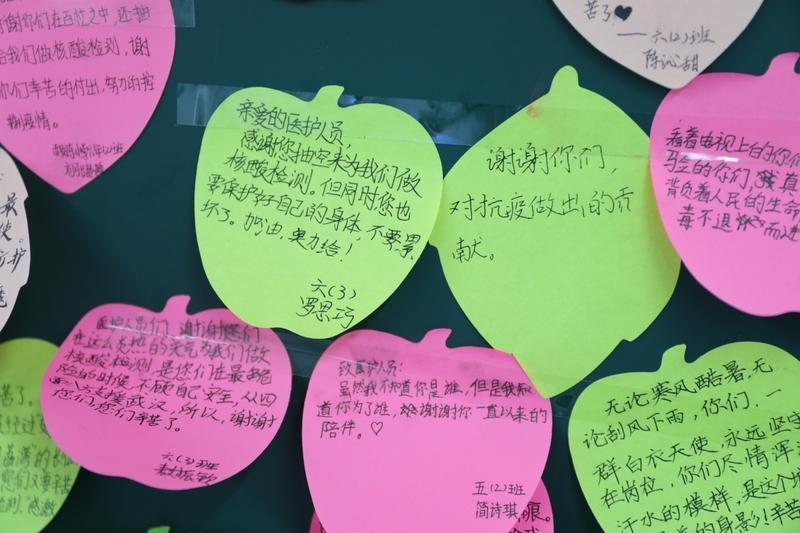 谢你们在百忙之中,还抽
给我们做核酸检测,谢
你们辛苦的付出,努力的控
制疫情。
苦了♥
——六(2)班
陈沁甜
亲爱的医护人员,
感谢您抽空来为我们做
核酸检测。但同时您也
要保护好自己的身体,不要累
坏了。加油,奥力给!
六(3)
罗思巧
谢谢你们,
对抗疫做出的贡
献。
看着电视上的你们
的你们,我真
背负着人民的生命
毒不退 而进
医护人员们,谢谢您们
在这么炎热的天气为我们做
核酸检测,是您们在最危
险的时候,不顾自己安全,从四
面八方支援武汉,所以,谢谢
您们,您们辛苦了。
六(3)班
致医护人员:
虽然我不知道你是谁,但是我知
道你为了谁,谢谢你一直以来的
陪伴。♡
五(2)班
简诗琪
无论寒风酷暑,无
论刮风下雨,你们,一
群白衣天使,永远坚守
在岗位,你们尽情挥洒
汗水的模样,是这个
的身影!辛苦